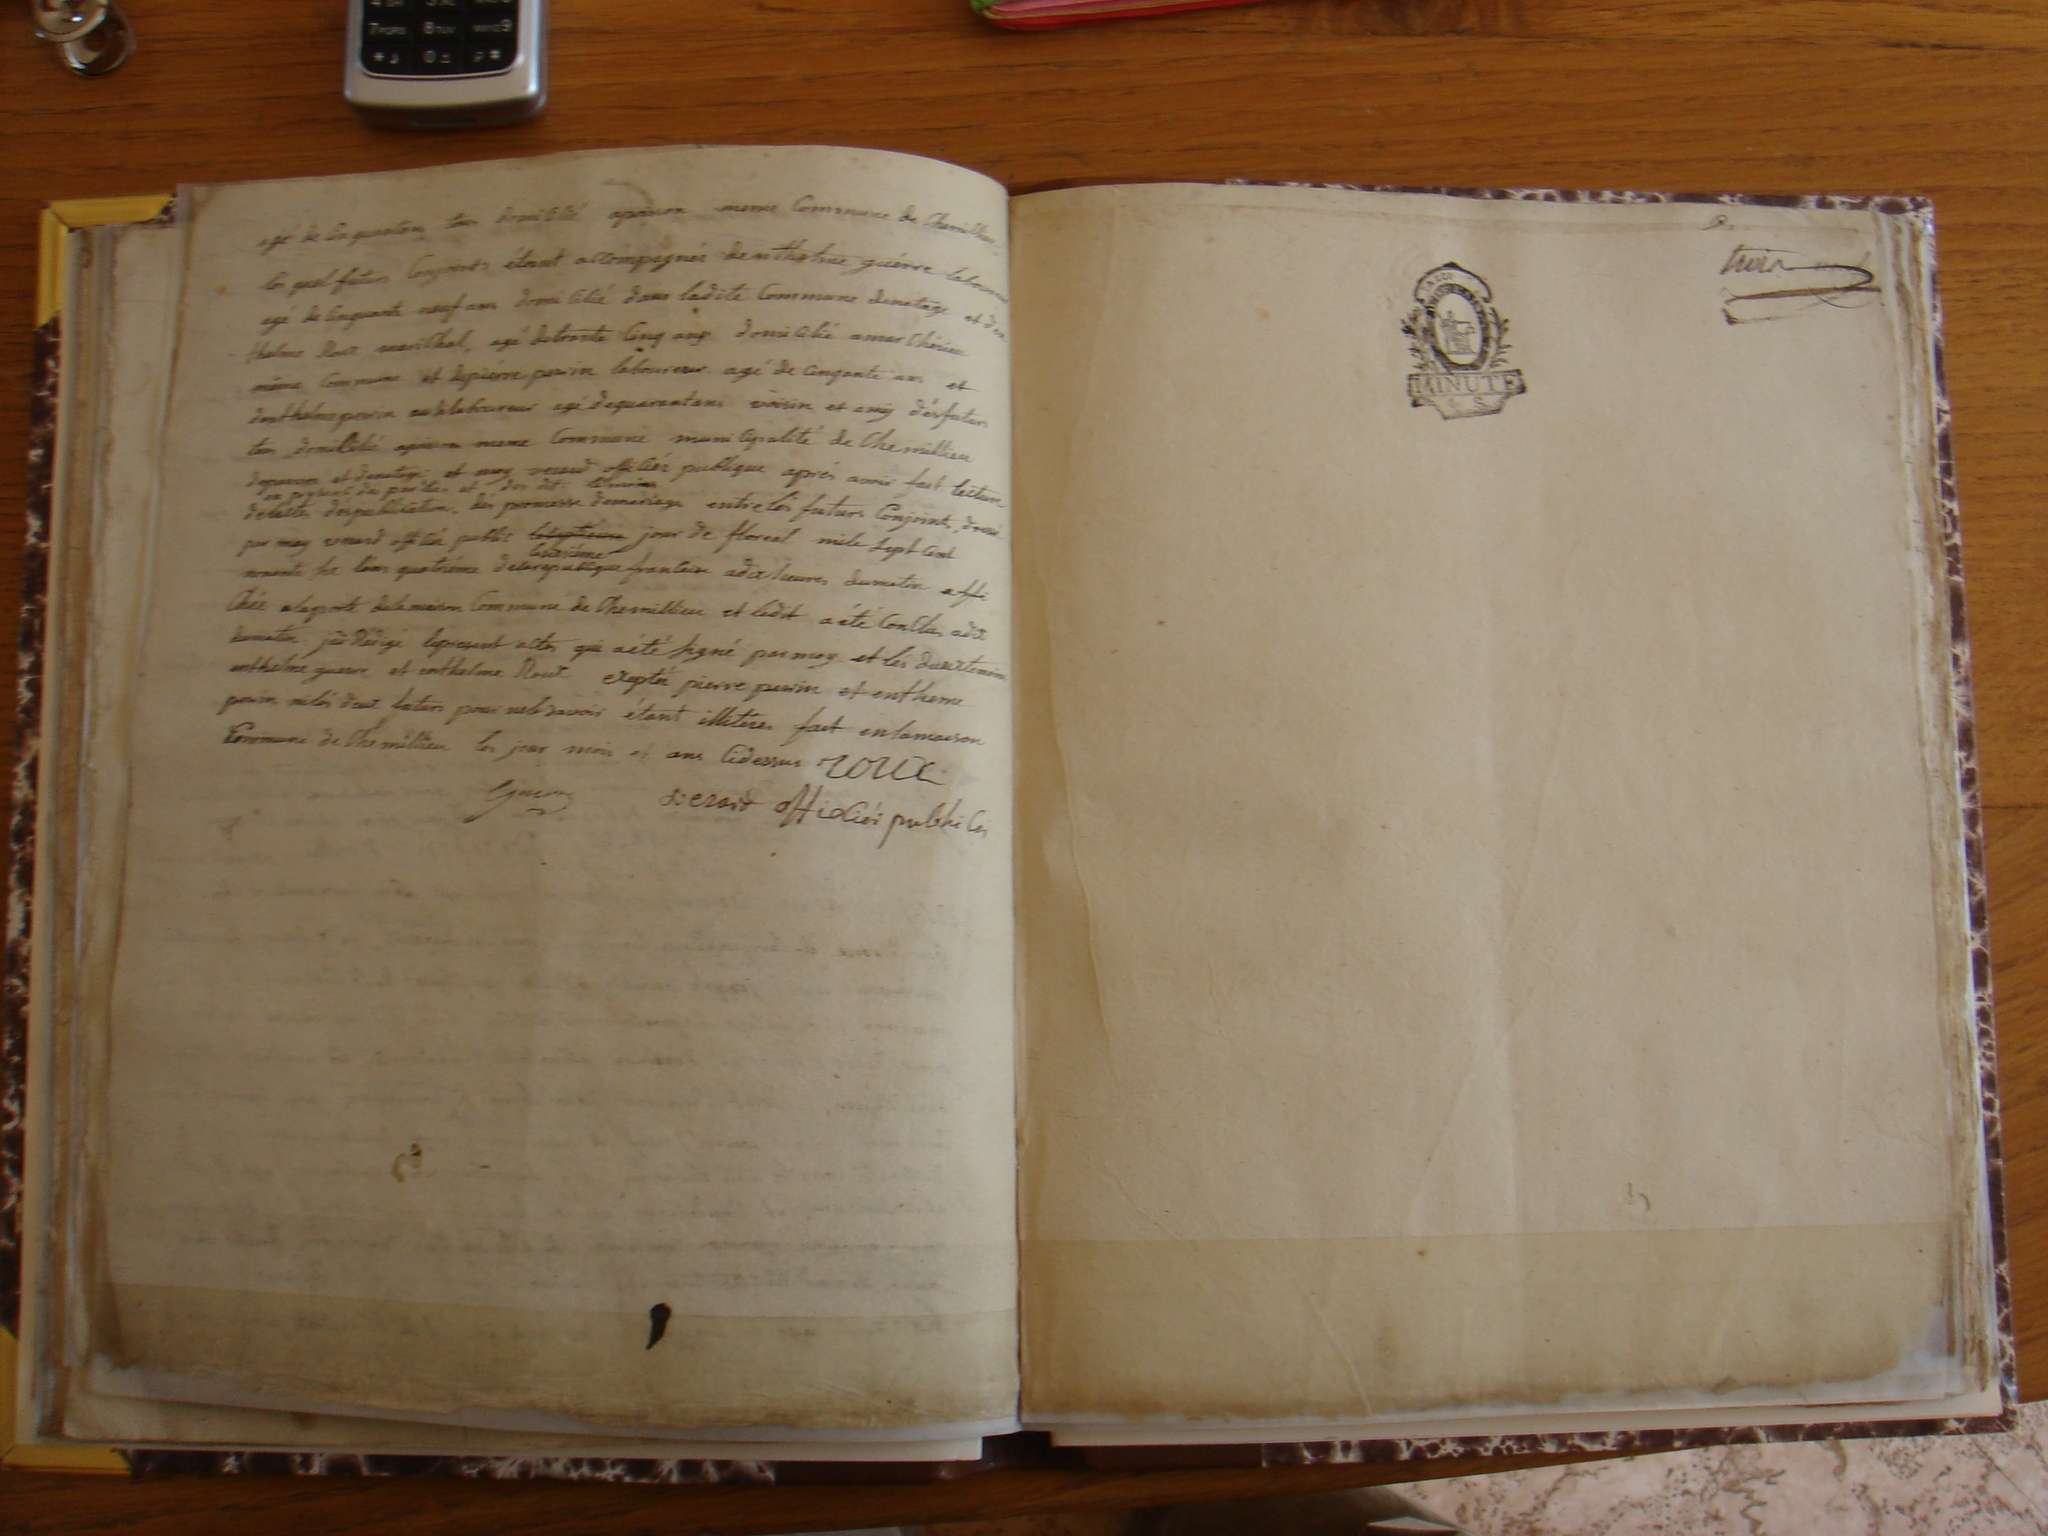 agé de Cinquantans tous domicilié aparson meme Commune de Chemillieu
les quel futurs Conjoints étant accompagnés denthelme guérre laboureur
agé de Cinquante neuf ans domicilié dans ladite Commune denatage et den
thelme Roux marichal, agé detrante Cinq ans domicilié amarchérieu
même Commune et depierre perrin laboureur agé de Cinqante ans et
denthelme perrin laboureur agé dequarantans voisin et amis désfuturs
tous domicilié aparson meme Commune municipalité de Chemillieu
deparson et denatage et moy verard officiér publique aprés avoir fait lecture
en présent des parties et des dit temoins
delacte des publication des promesse demariage entre les futurs Conjoints, dressé
par moy verard officié public jour de floreal mile sept Cent
troisieme
nonante six lans quatriéme delarepublique francaise adix heures dumatin affi
Chée alaporte delamaison Commune de Chemillieu et ledit a été Conclus adix
dumatin jai Rédigé lepresent actes qui aété signé parmoy et les deuxtemoins
enthelme guerre et enthelme Roux exepté pierre perrin et entheme
perrin nilés deux futurs pour nelesavoir étant illiteres fait enlamaison
Commune de Chemillieu les jour mois et ans Cidessus roux
Guerre verard officiér publi
LA LOI
MINUTE
S